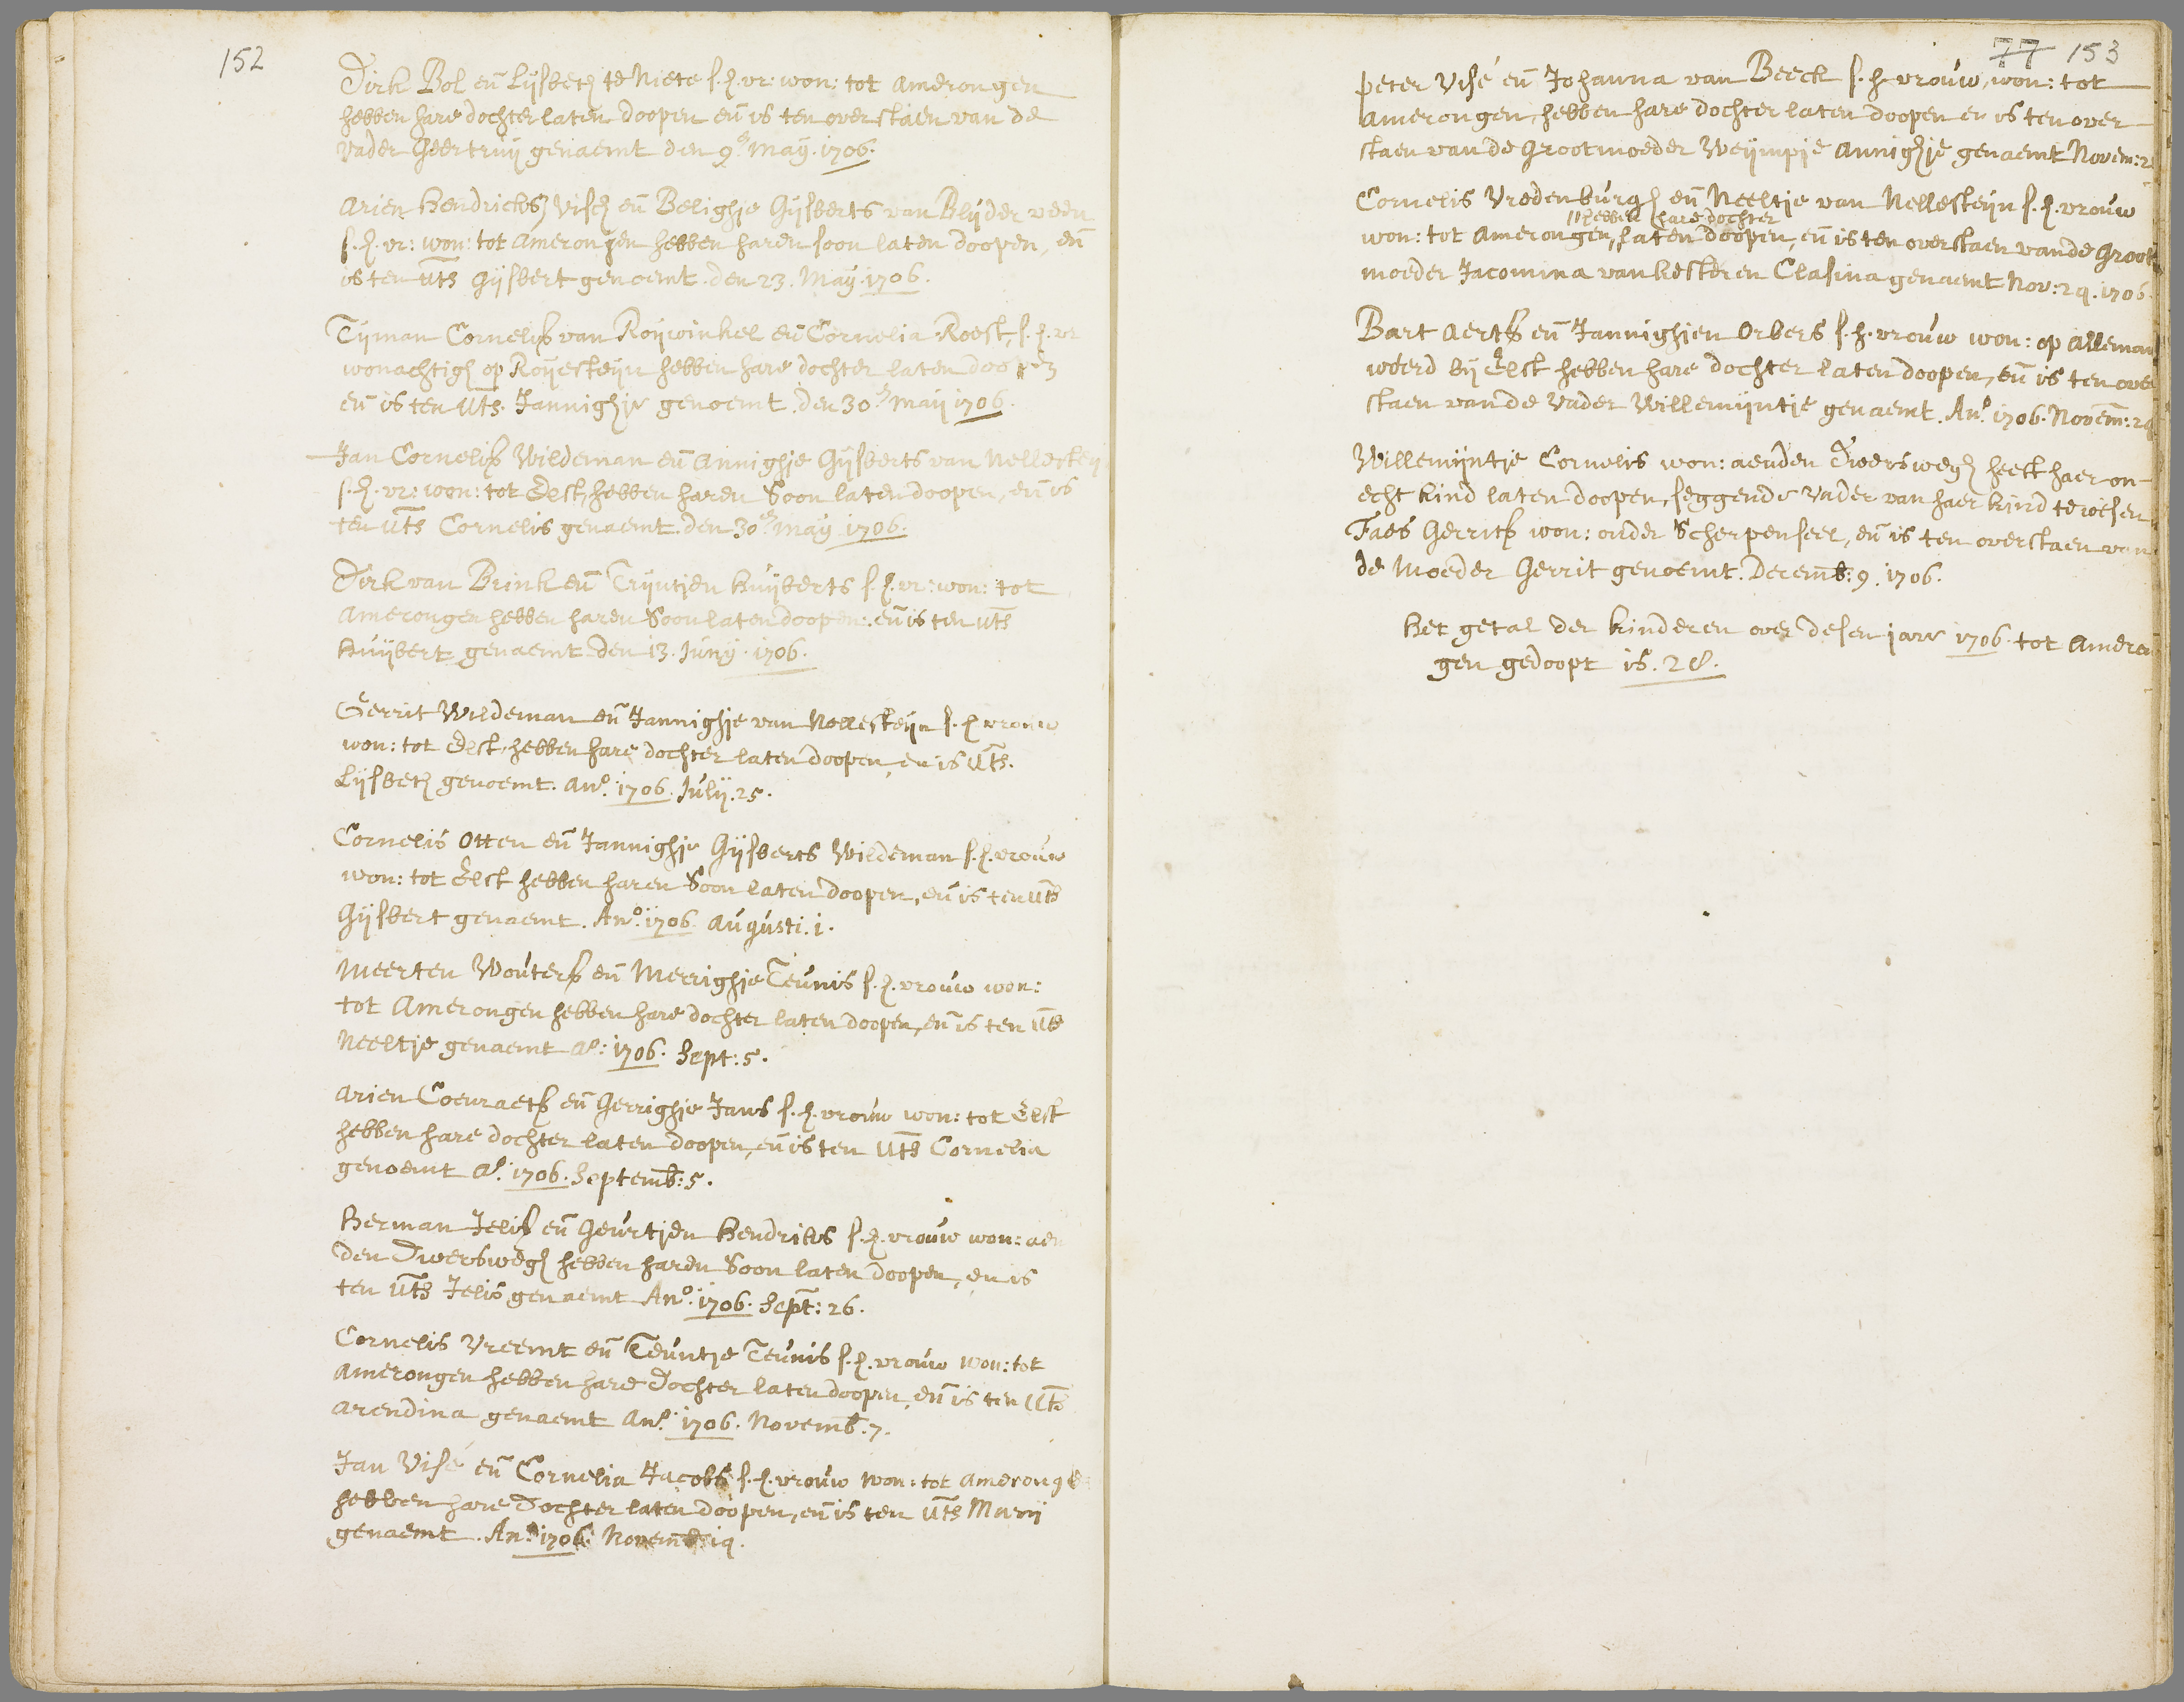 152
Dirk Bol en Lijsbeth te Niete s.h.vr: won: tot Amerongen
hebben hare dochter laten doopen en is ten overstaen van de
vader Geertruij genaemt den 9e Maij. 1706.
Arien Hendricksz Visch en Belighje Gijsberts van Blijderveen
s.h.vr: won: tot Amerongen hebben haren soon laten doopen, en
is ten uts Gijsbert genoemt. den 23. Maij. 1706.
Tijman Cornelisz van Roijwinkel en Cornelia Roest, s.h.vr
wonachtigh op Roijesteijn hebben hare dochter laten
en is ten uts. Jannighje genoemt. den 30e Maij 1706.
Jan Cornelisz Wildeman en Annighje Gijsberts van Nellesteij
s.h.vr: won: tot Elst, hebben haren Soon laten doopen, en is
ten uts Cornelis genaemt. den 30e Maij 1706.
Dirk van Brink en Trijntjen Huijberts s.h.vr: won: tot
Amerongen hebben haren Soon laten doopen: en is ten uts
Huijbert genaemt den 13. Junij. 1706.
Gerrit Wildeman en Jannighje van Nellesteijn s.h vrouw
won: tot Elst, hebben hare dochter laten doopen, en is uts.
Lijsbeth genoemt. Ano. 1706. Julij. 25.
Cornelis Otten en Jannighje Gijsberts Wildeman s.h.vrouw
won: tot Elst hebben haren Soon laten doopen, en is ten uts
Gijsbert genaemt. Ano. 1706 Augusti. 1.
Meerten Woutersz en Merrighje Teunis s.h.vrouw won:
tot Amerongen hebben hare dochter laten doopen, en is ten uts
Neeltje genaemt Ao: 1706. Sept: 5.
Arien Coenraetsz en Gerrighje Jans s.h.vrouw won: tot Elst
hebben hare dochter laten doopen, en is ten uts Cornelia
genoemt Ao. 1706. Septemb: 5.
Herman Jelisz en Geurtjen Hendriks s.h.vrouw won: aen
den Dwerswegh hebben haren Soon laten doopen, en is
ten uts Jelis genaemt Ano. 1706. Sept: 26.
Cornelis Vreemt en Teuntje Teunis s.h.vrouw won: tot
Amerongen hebben hare Dochter laten doopen, en is ten uts
Arendina genaemt Ano. 1706. Novemb. 7.
Jan Visé en Cornelia Jacobs s.h.vrouw won: tot Amerongen
hebben hare Dochter laten doopen, en is ten uts Marij
genaemt. Ano 1706. Novemb. 14.
77 153
Peter Visé en Johanna van Beeck s.h vrouw, won: tot
Amerongen, hebben hare dochter laten doopen en is ten over
staen van de Grootmoeder Weijmpje Annighje genaemt Novem: 2
Cornelis Vredenburgh en Neeltje van Nellesteijn s.h.vrouw
hebben hare dochter
won: tot Amerongen, laten doopen, en is ten overstaen van de Groot
moeder Jacomina van Kesteren Clasina genaemt Nov: 24. 1706.
Bart Aertsz en Jannighjen Orbers s.h.vrouw won: op Alleman
woerd bij Elst hebben hare dochter laten doopen, en is ten over
staen van de Vader Willemijntje genaemt. Ano. 1706. Novem: 2
Willemijntje Cornelis won: aen den Dwerswegh heeft haer on-
echt kind laten doopen, seggende Vader van haer kind te wesen
Faes Gerritsz won: onder Scherpenseel, en is ten overstaen van
de Moeder Gerrit genoemt. Decemb: 9. 1706.
Het getal der kinderen over desen jare 1706. tot Ameron
gen gedoopt is. 28.